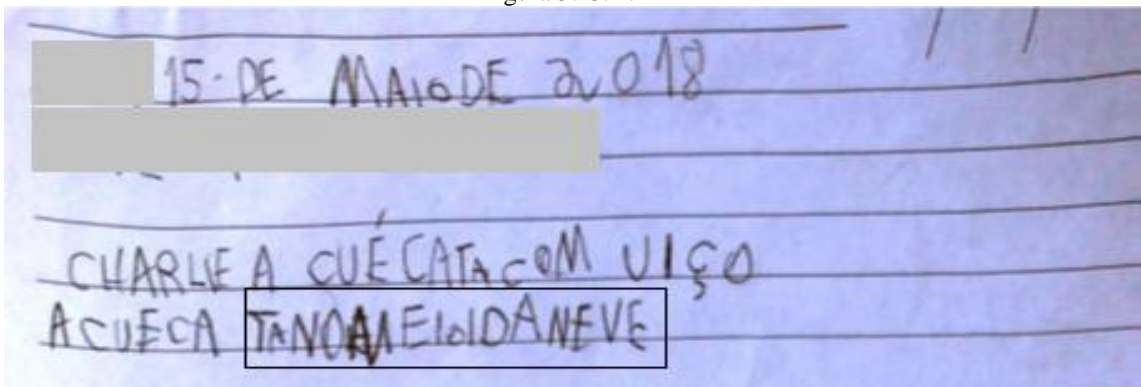 15. DE MAIODE 2018
CHARLIE A CUÉCATA COM UIÇO
ACUECA TANOMEIOIDANEVE